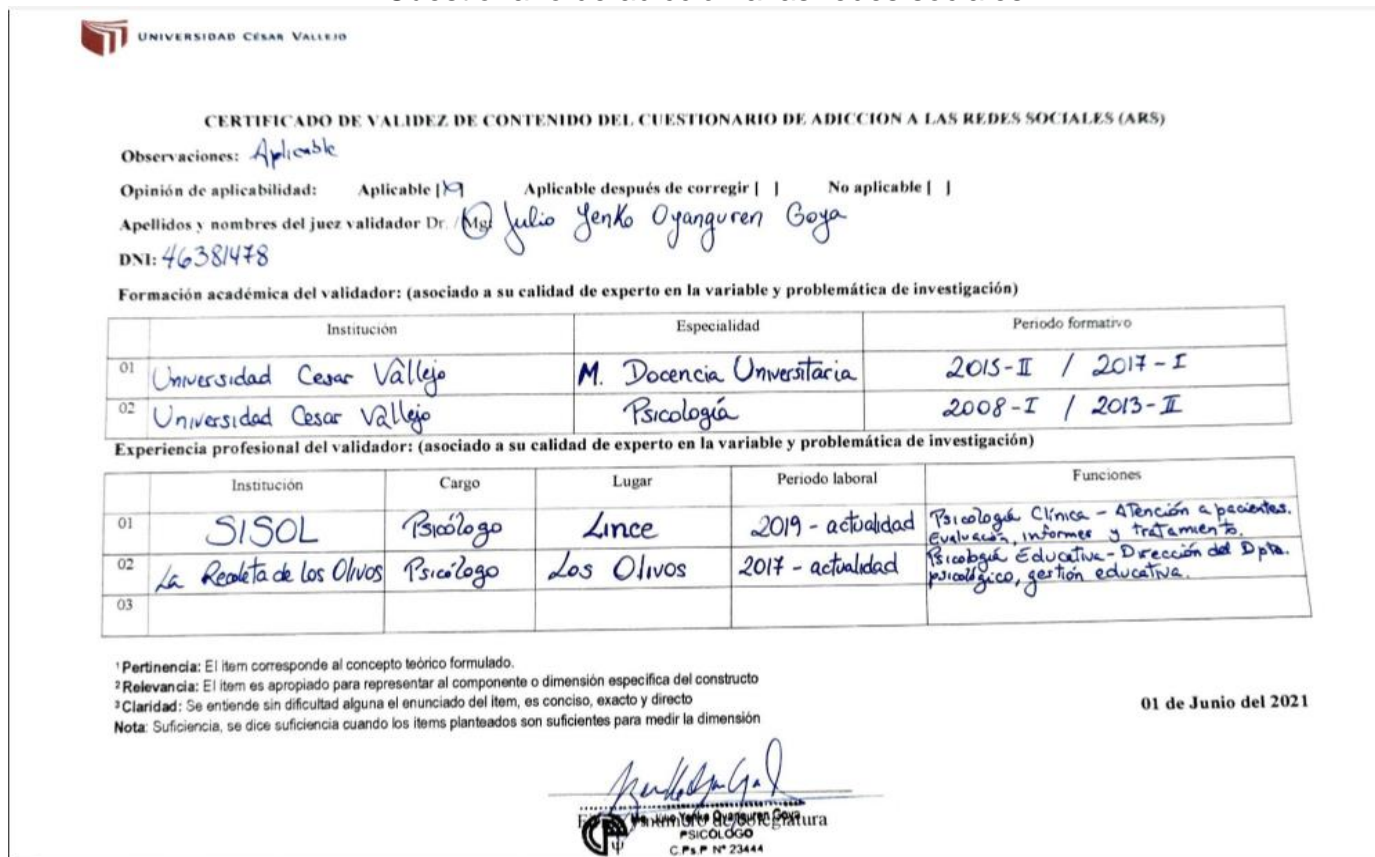 UNIVERSIDAD CÉSAR VALLEJO
CERTIFICADO DE VALIDEZ DE CONTENIDO DEL CUESTIONARIO DE ADICCION A LAS REDES SOCIALES (ARS)
Observaciones: Aplicable
Opinión de aplicabilidad: Aplicable [X] Aplicable después de corregir [ ] No aplicable [ ]
Apellidos y nombres del juez validador Dr. / Mg: Julio Yenko Oyanguren Goya
DNI: 46381478
Formación académica del validador: (asociado a su calidad de experto en la variable y problemática de investigación)
Institución Especialidad Periodo formativo
01 Universidad Cesar Vallejo M. Docencia Universitaria 2015-II / 2017-I
02 Universidad Cesar Vallejo Psicología 2008-I / 2013-II
Experiencia profesional del validador: (asociado a su calidad de experto en la variable y problemática de investigación)
Institución Cargo Lugar Periodo laboral Funciones
01 SISOL Psicólogo Lince 2019 - actualidad Psicología Clínica - Atención a pacientes.
Evaluación, informes y tratamiento.
02 La Recoleta de Los Olivos Psicólogo Los Olivos 2017 - actualidad Psicología Educativa - Dirección del Dpto.
psicológico, gestión educativa.
03
¹ Pertinencia: El item corresponde al concepto teórico formulado.
² Relevancia: El item es apropiado para representar al componente o dimensión especifica del constructo
³ Claridad: Se entiende sin dificultad alguna el enunciado del item, es conciso, exacto y directo
Nota: Suficiencia, se dice suficiencia cuando los items planteados son suficientes para medir la dimensión
01 de Junio del 2021
Julio Yenko Oyanguren Goya
PSICÓLOGO
C.Ps.P N° 23444